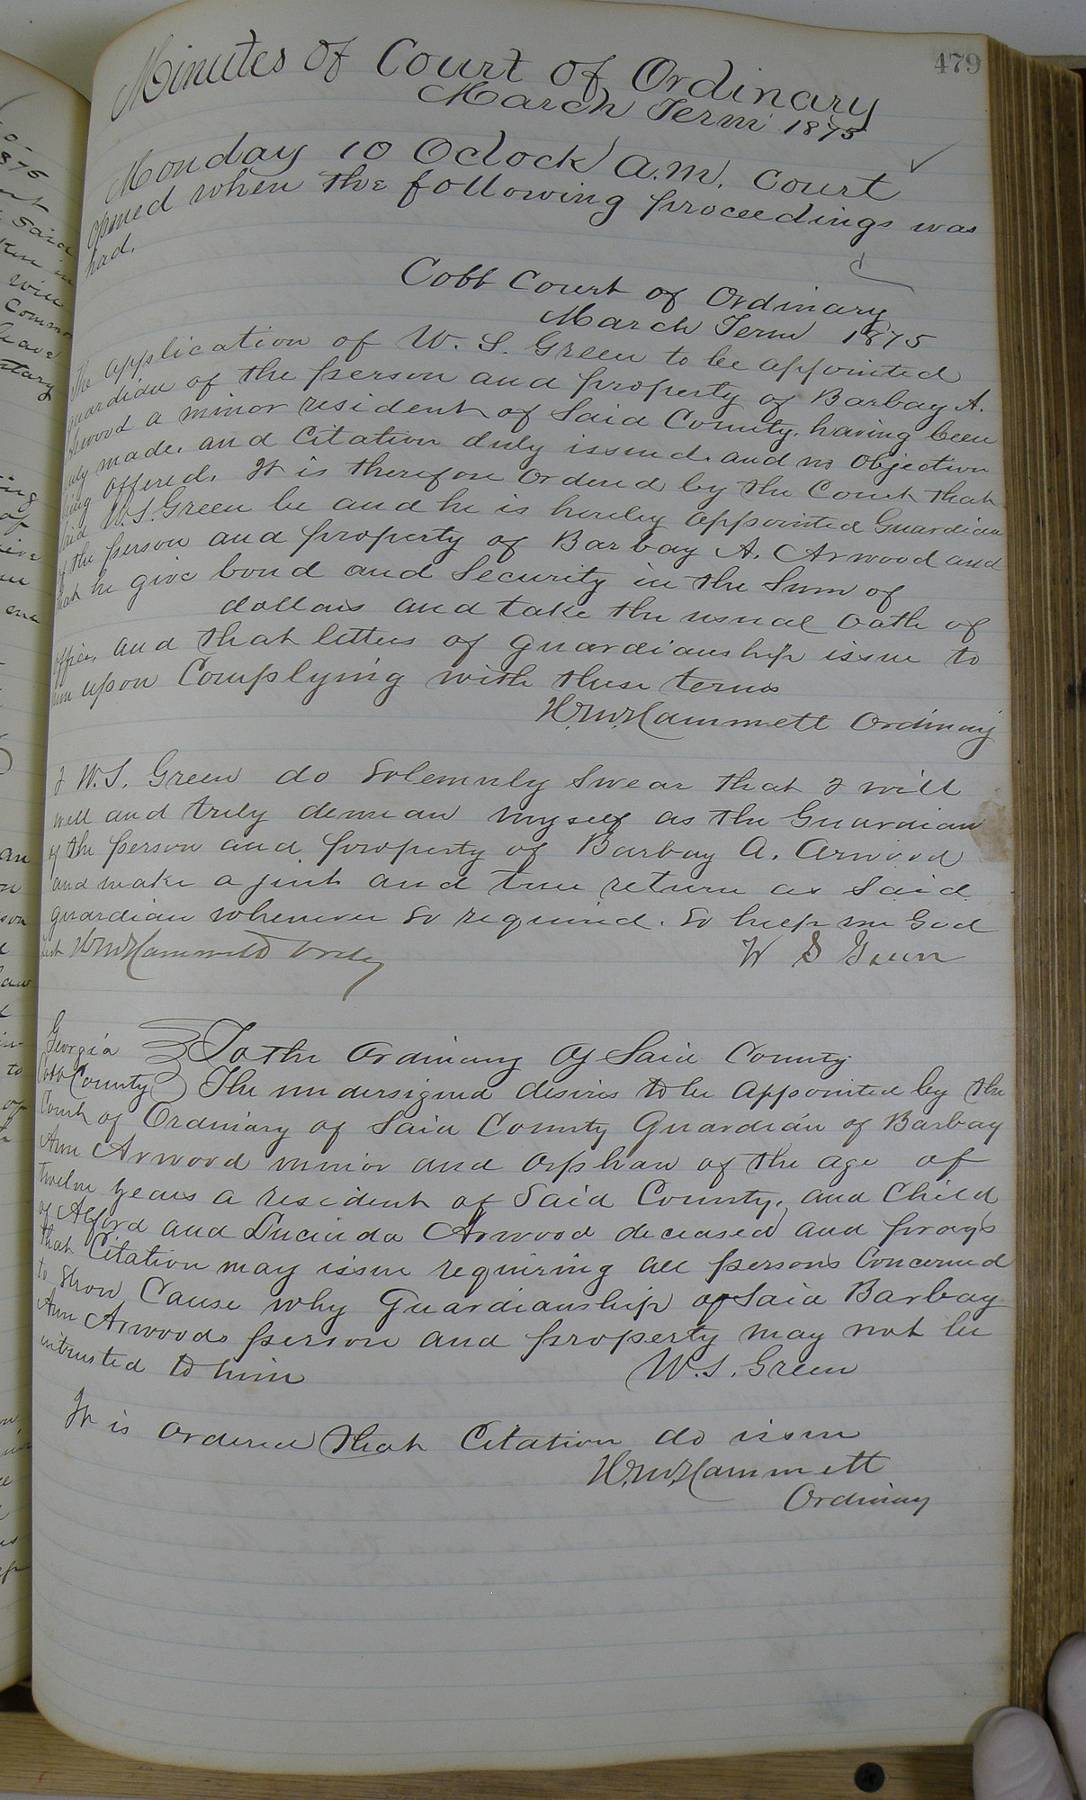 479
Minutes of Court of Ordinary
March Term 1875
Monday 10 Oclock A.M. Court
opened when the following proceedings was
had.
Cobb Court of Ordinary
March Term 1875
The application of W. S. Green to be appointed
guardian of the person and property of Barbay A.
Arwood a minor resident of Said County, having been
duly made, and Citation duly issued and no Objection
being offered. It is therefore Ordered by the Court that
Said W. S. Green be and he is hereby appointed Guardian
of the person and property of Barbay A. Arwood and
that he give bond and Security in the Sum of
dollars and take the usual Oath of
Office, and that letters of guardianship issue to
him upon Complying with these terms
H.M. Hammett Ordinary
I W. S. Green do Solemnly Swear that I will
well and truly demean myself as the Guardian
of the person and property of Barbay A. Arwood
and make a just and true return as Said
guardian whenever So required. So help me God
Test H M Hammett Ordy
W S Green
Georgia
Cobb County
To the Ordinary Of Said County
The undersigned desires to be appointed by the
Court of Ordinary of Said County Guardian of Barbay
Ann Arwood minor and Orphan of the age of
twelve years a resident of Said County, and Child
of Alford and Lucinda Arwood deceased and prays
that Citation may issue requiring all persons Concerned
to Show Cause why Guardianship of Said Barbay
Ann Arwoods person and property may not be
intrusted to him
W. S. Green
It is Ordered that Citation do issue
H.M. Hammett
Ordinary